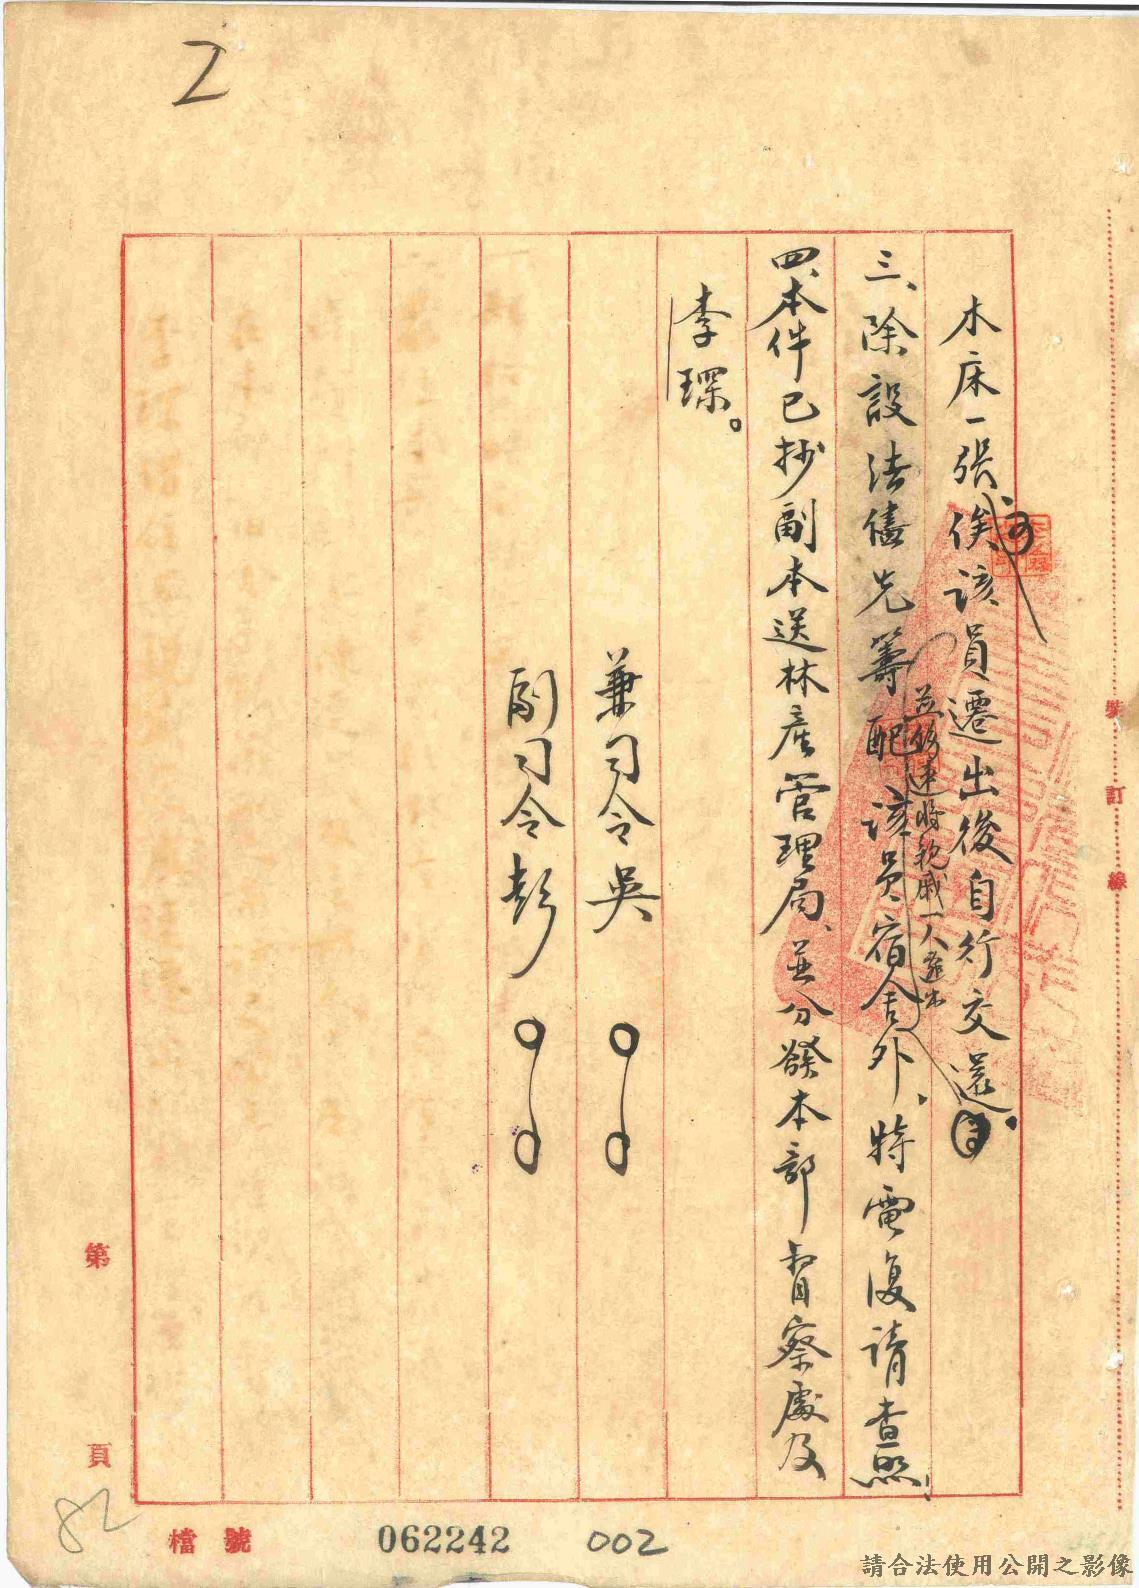 2
木床一張俟該員遷出後自行交還。
三、除設法儘先籌配該員宿舍外、特電復請查照、
並將速將親戚一人遷出
四、本件已抄副本送林產管理局、並分發本部督察處及
李琛。
兼司令吳
副司令彭
裝
訂
線
第
頁
82
檔 號
062242
002
請合法使用公開之影像